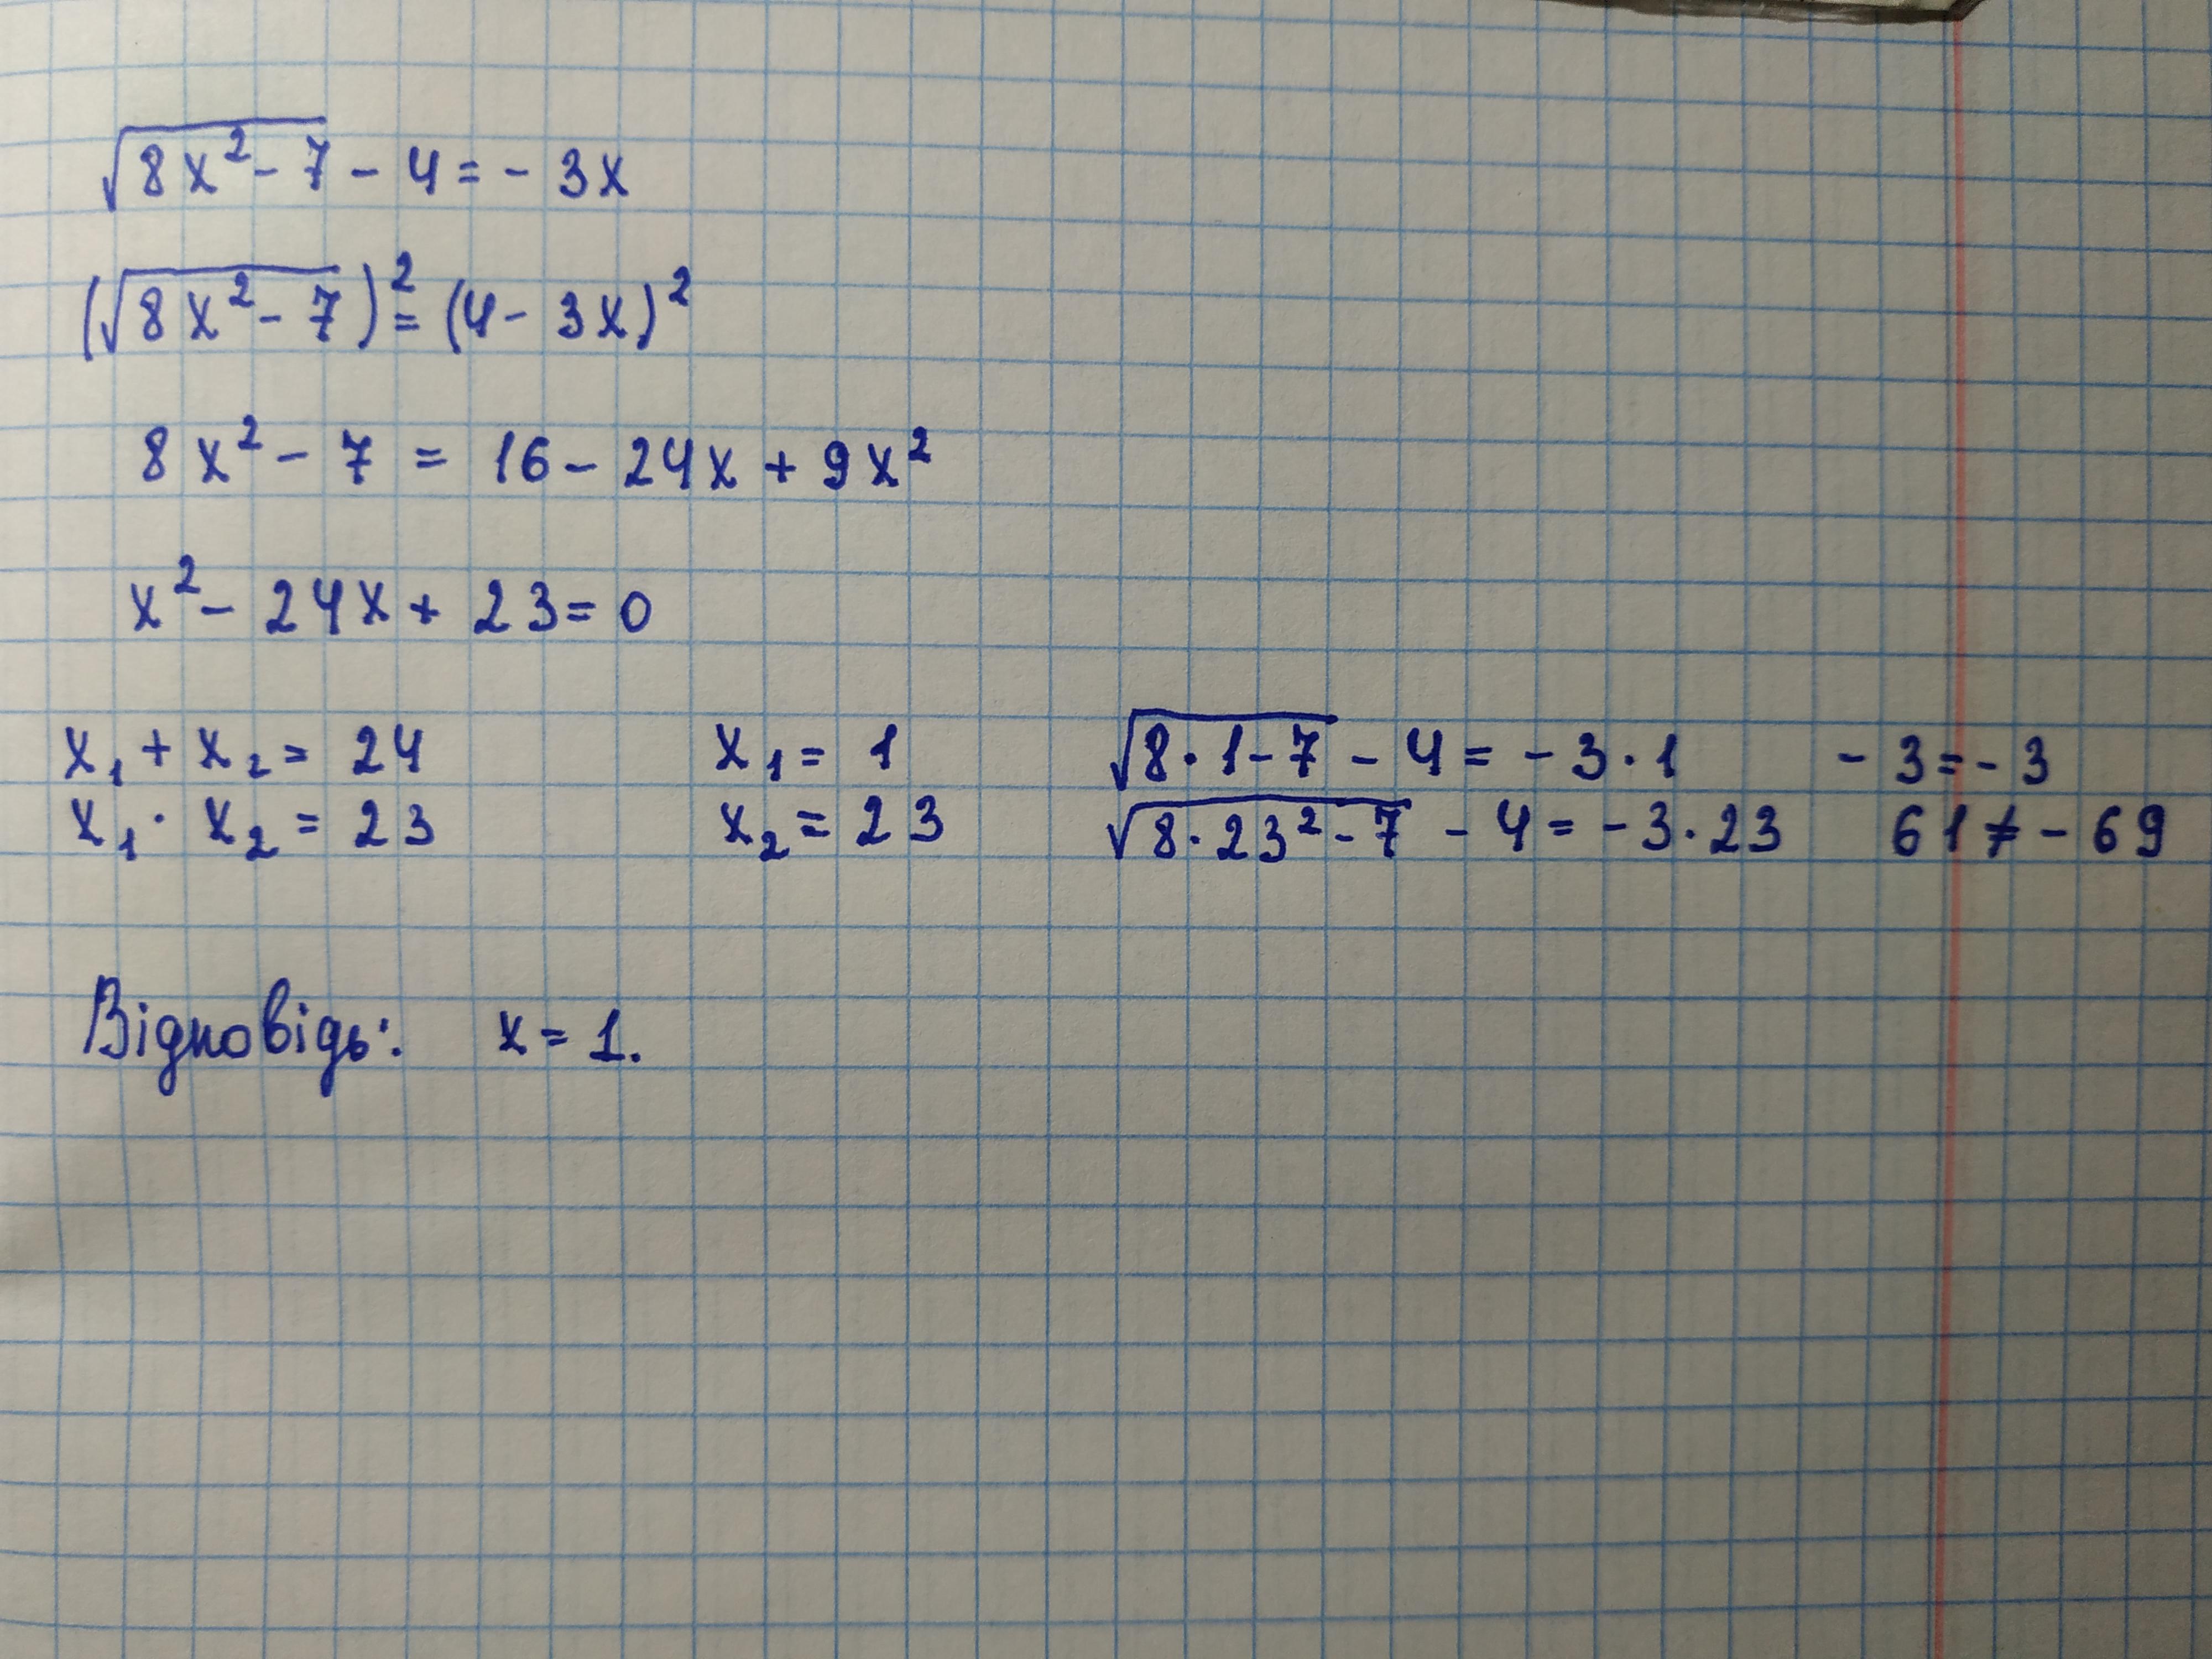 √(8x² - 7) - 4 = - 3x
(√(8x² - 7))² = (4 - 3x)²
8x² - 7 = 16 - 24x + 9x²
x² - 24x + 23 = 0
x₁ + x₂ = 24 x₁ = 1 √(8·1 - 7) - 4 = - 3·1 - 3 = - 3
x₁ · x₂ = 23 x₂ = 23 √(8·23² - 7) - 4 = - 3·23 61 ≠ - 69
Відповідь: x = 1.